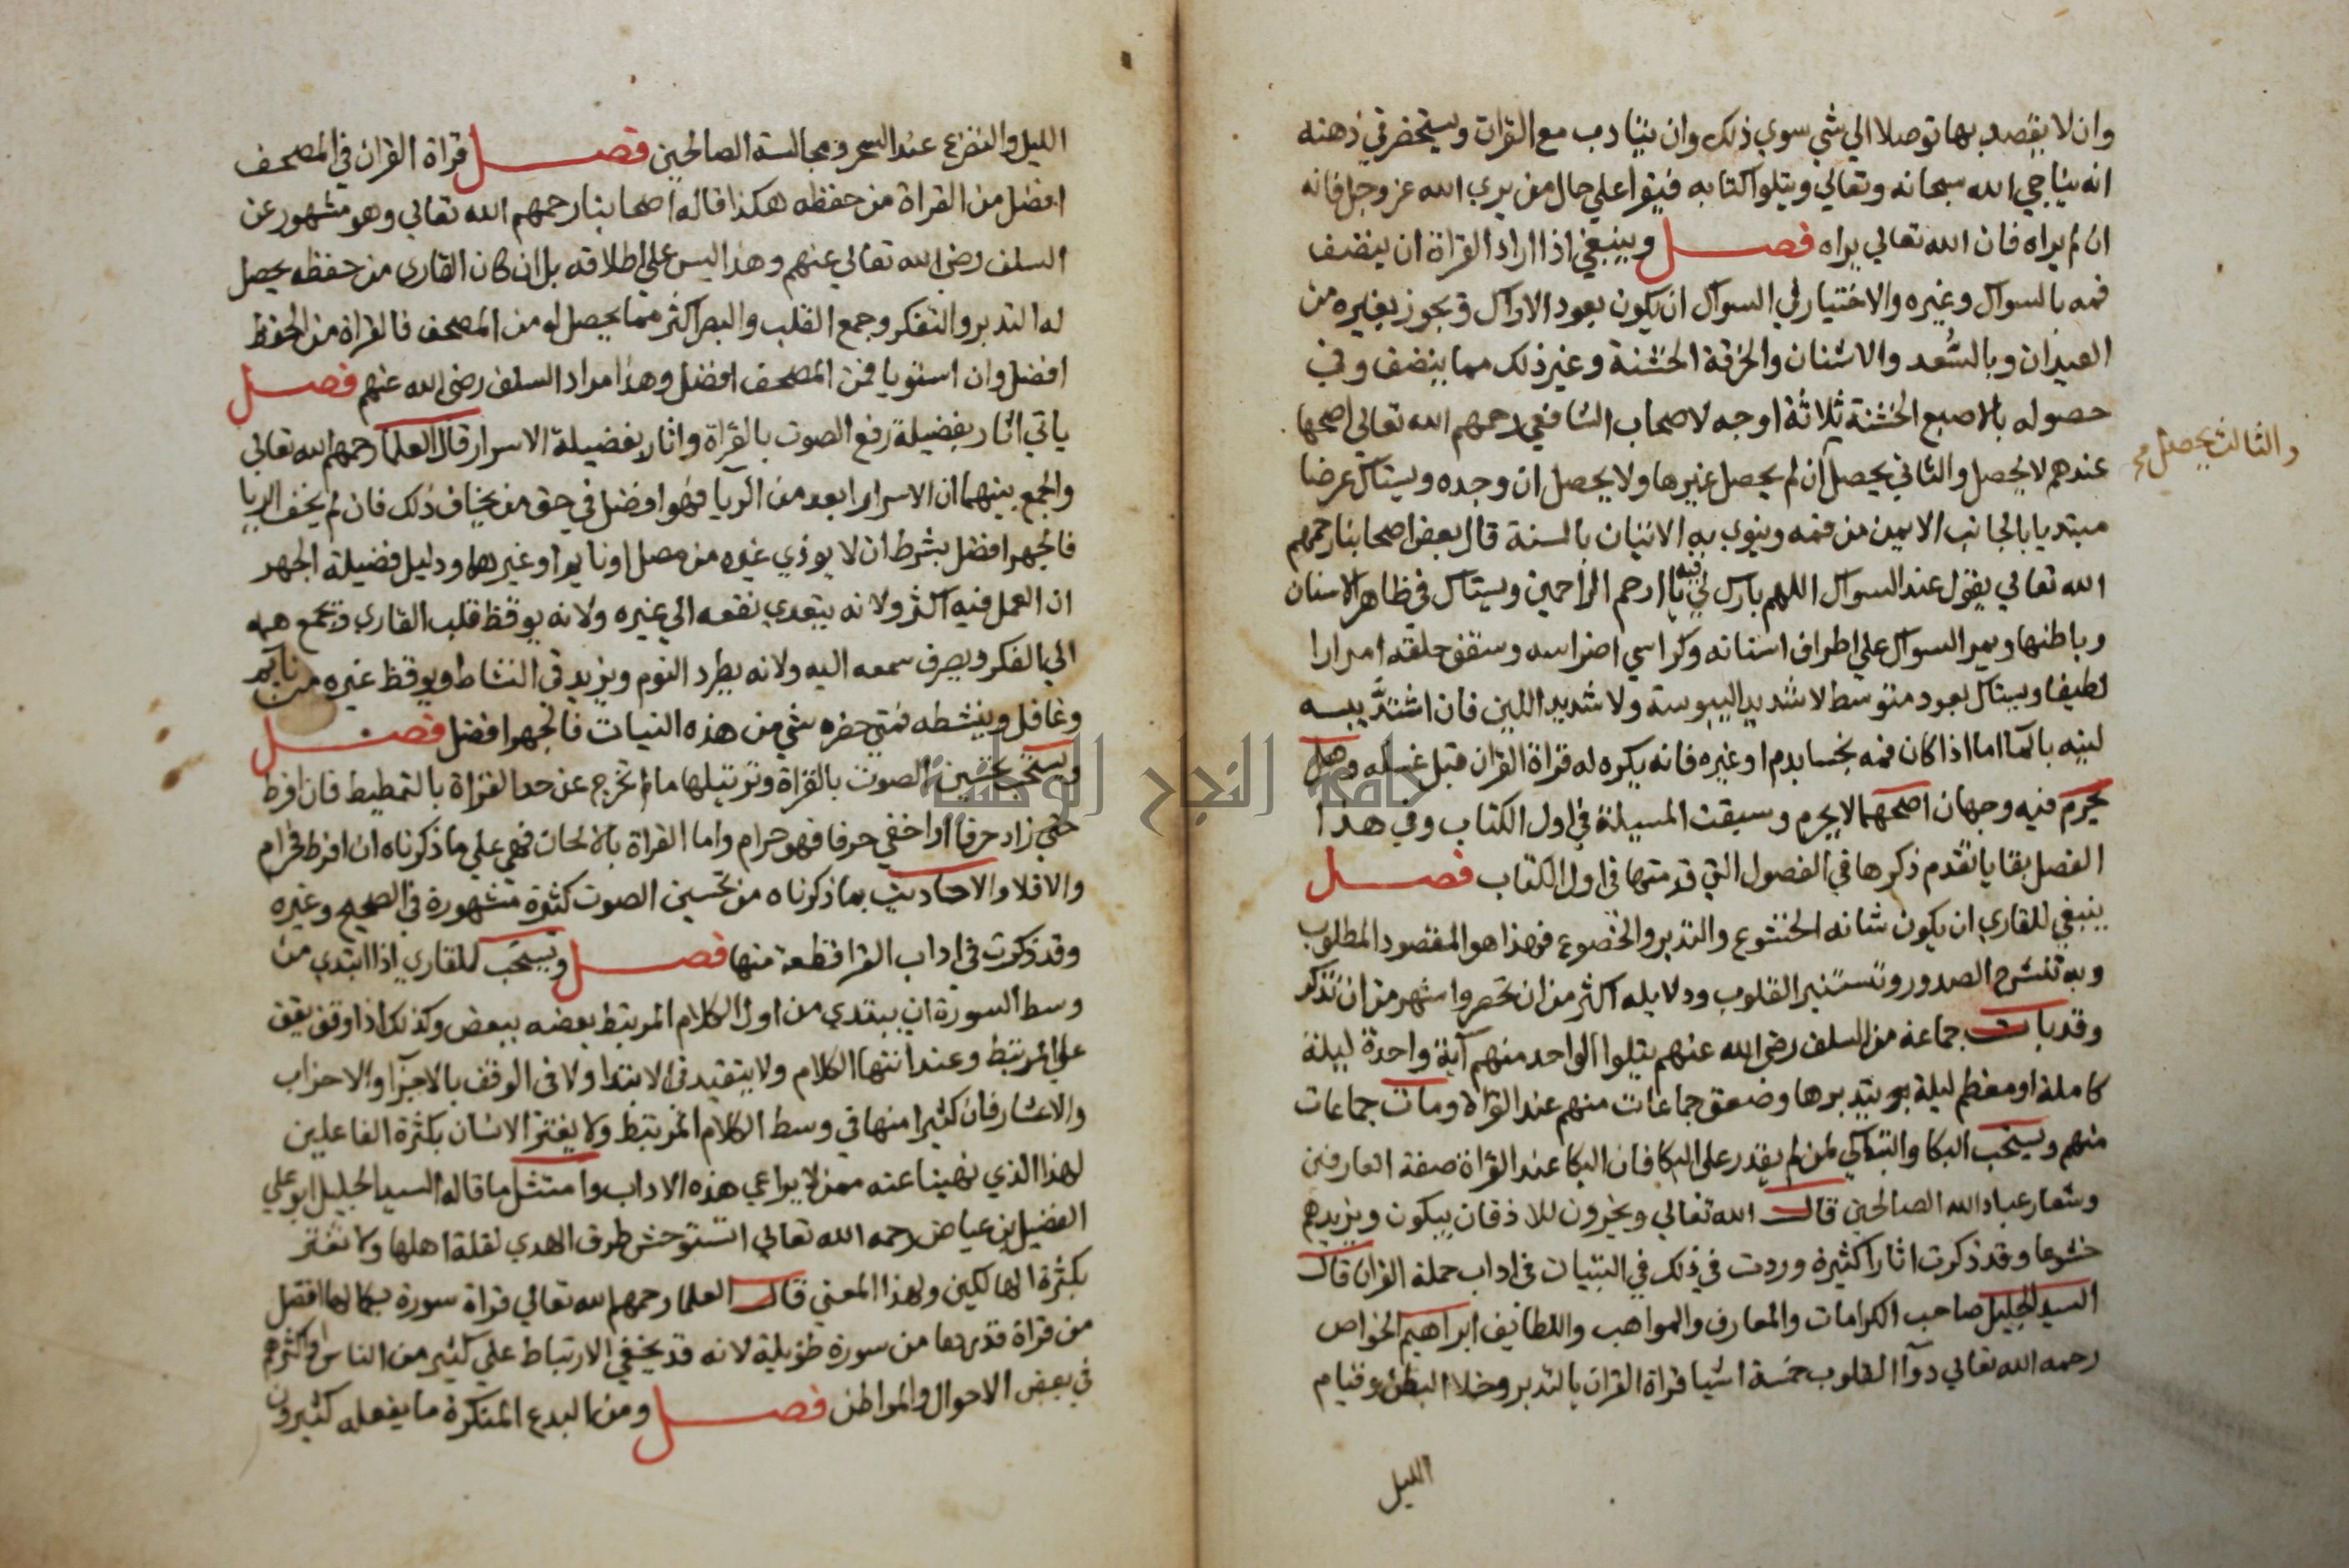 وان لا يقصد بها توصلا الي شي سوي ذلك وان يتادب مع القران ويستحضر في ذهنه
انه يناجي الله سبحانه وتعالي ويتلوا كتابه فيقرا علي حال من يري الله عز وجل فانه
ان لم يراه فان الله تعالي يراه فصل وينبغي اذا اراد القراة ان ينضف
فمه بالسواك وغيره والاختيار في السواك ان يكون بعود الاراك ويجوز بغيره من
العيدان وبالسُّعد والاشنان والخرقة الخشنة وغير ذلك مما ينضف وفي
حصوله بالاصبع الخشنة ثلاثة اوجه لاصحاب الشافعي رحمهم الله تعالي اصحها
عندهم لا يحصل والثاني يحصل ان لم يحصل غيرها ولا يحصل ان وجده ويستاك عرضا
والثالث يحصل
مبتديا بالجانب الايمن من فمه وينوي به الاتيان بالسنة قال بعض اصحابنا رحمهم
الله تعالي يقول عند السواك اللهم بارك لي فيه يا ارحم الراحمين ويستاك في ظاهر الاسنان
وباطنها ويمر السواك علي اطراف اسنانه وكراسي اضراسه وسقف حلقه امرارا
لطيفا ويستاك بعود متوسط لا شديد اليبوسة ولا شديد اللين فان اشتد يبسه
لينه بالمآ اما اذا كان فمه نجسا بدم او غيره فانه يكره له قراة القران قبل غسله وهل
يحرم فيه وجهان اصحهما لا يحرم وسبقت المسيلة في اول الكتاب وفي هذا
الفصل بقايا تقدم ذكرها في الفصول التي قدمتها في اول الكتاب فصل
ينبغي للقاري ان يكون شانه الخشوع والتدبر والخضوع فهذا هو المقصود المطلوب
وبه تنشرح الصدور وتستنير القلوب ودلايله اكثر من ان تحصر واشهر من ان تذكر
وقد بات جماعة من السلف رضي الله عنهم يتلوا الواحد منهم آية واحدة ليلة
كاملة او معظم ليلة يتدبرها وصعق جماعات منهم عند القراة ومات جماعات
منهم ويستحب البكا والتباكي لمن لم يقدر علي البكا فان البكا عند القراة صفة العارفين
وشعار عباد الله الصالحين قال الله تعالي ويخرون للاذقان يبكون ويزيدهم
خشوعا وقد ذكرت اثارا كثيرة وردت في ذلك في التبيات في اداب حملة القران قال
السيد الجليل صاحب الكرامات والمعارف والمواهب واللطايف ابراهيم الخواص
رحمه الله تعالي دوآ القلوب خمسة اشيا قراة القران بالتدبر وخلا البطن وقيام
الليل
الليل والتضرع عند السحر ومجالسة الصالحين فصل قراة القران في المصحف
افضل من القراة من حفظه هكذا قاله اصحابنا رحمهم الله تعالي وهو مشهور عن
السلف رضي الله تعالي عنهم وهذا ليس علي اطلاقه بل ان كان القاري من حفظه يحصل
له التدبر والتفكر وجمع القلب والبصر اكثر مما يحصل له من المصحف فالقراة من الحفظ
افضل وان استويا فمن المصحف افضل وهذا مراد السلف رضي الله عنهم فصل
ياتي اثار بفضيلة رفع الصوت بالقراة واثار بفضيلة الاسرار قال العلما رحمهم الله تعالي
والجمع بينهما ان الاسرار ابعد من الريا فهو افضل في حق من يخاف ذلك فان لم يخف الريا
فالجهر افضل بشرط ان لا يوذي غيره من مصل او نايم او غيرهما ودليل فضيلة الجهر
ان العمل فيه اكثر ولانه يتعدي نفعه الي غيره ولانه يوقظ قلب القاري ويجمع همه
الي الفكر ويصرف سمعه اليه ولانه يطرد النوم ويزيد في النشاط ويوقظ غيره من نايم
وغافل وينشطه فمتي حضره شي من هذه النيات فالجهر افضل فصل
ويستحب تحسين الصوت بالقراة وترتيلها ما لم تخرج عن حد القراة بالتمطيط فان افرط
حتي زاد حرفا او اخفي حرفا فهو حرام واما القراة بالالحان فهي علي ما ذكرناه ان افرط فحرام
والا فلا والاحاديث بما ذكرناه من تحسين الصوت كثيرة مشهورة في الصحيح وغيره
وقد ذكرت في اداب القرا قطعة منها فصل ويستحب للقاري اذا ابتدي من
وسط السورة ان يبتدي من اول الكلام المرتبط بعضه ببعض وكذلك اذا وقف يقف
علي المرتبط وعند انتها الكلام ولا يتقيد في الابتدا ولا في الوقف بالاجزآ والاحزاب
والاعشار فان كثيرا منها في وسط الكلام المرتبط ولا يغتر الانسان بكثرة الفاعلين
لهذا الذي نهينا عنه ممن لا يراعي هذه الاداب وامتثل ما قاله السيد الجليل ابو علي
الفضيل بن عياض رحمه الله تعالي لا تستوحش طرق الهدي لقلة اهلها ولا تغتر
بكثرة الهالكين ولهذا المعني قال العلما رحمهم الله تعالي قراة سورة بكمالها افضل
من قراة قدرها من سورة طويلة لانه قد يخفي الارتباط علي كثير من الناس او اكثرهم
في بعض الاحوال والمواطن فصل ومن البدع المنكرة ما يفعله كثيرون
جامعة النجاح الوطنية